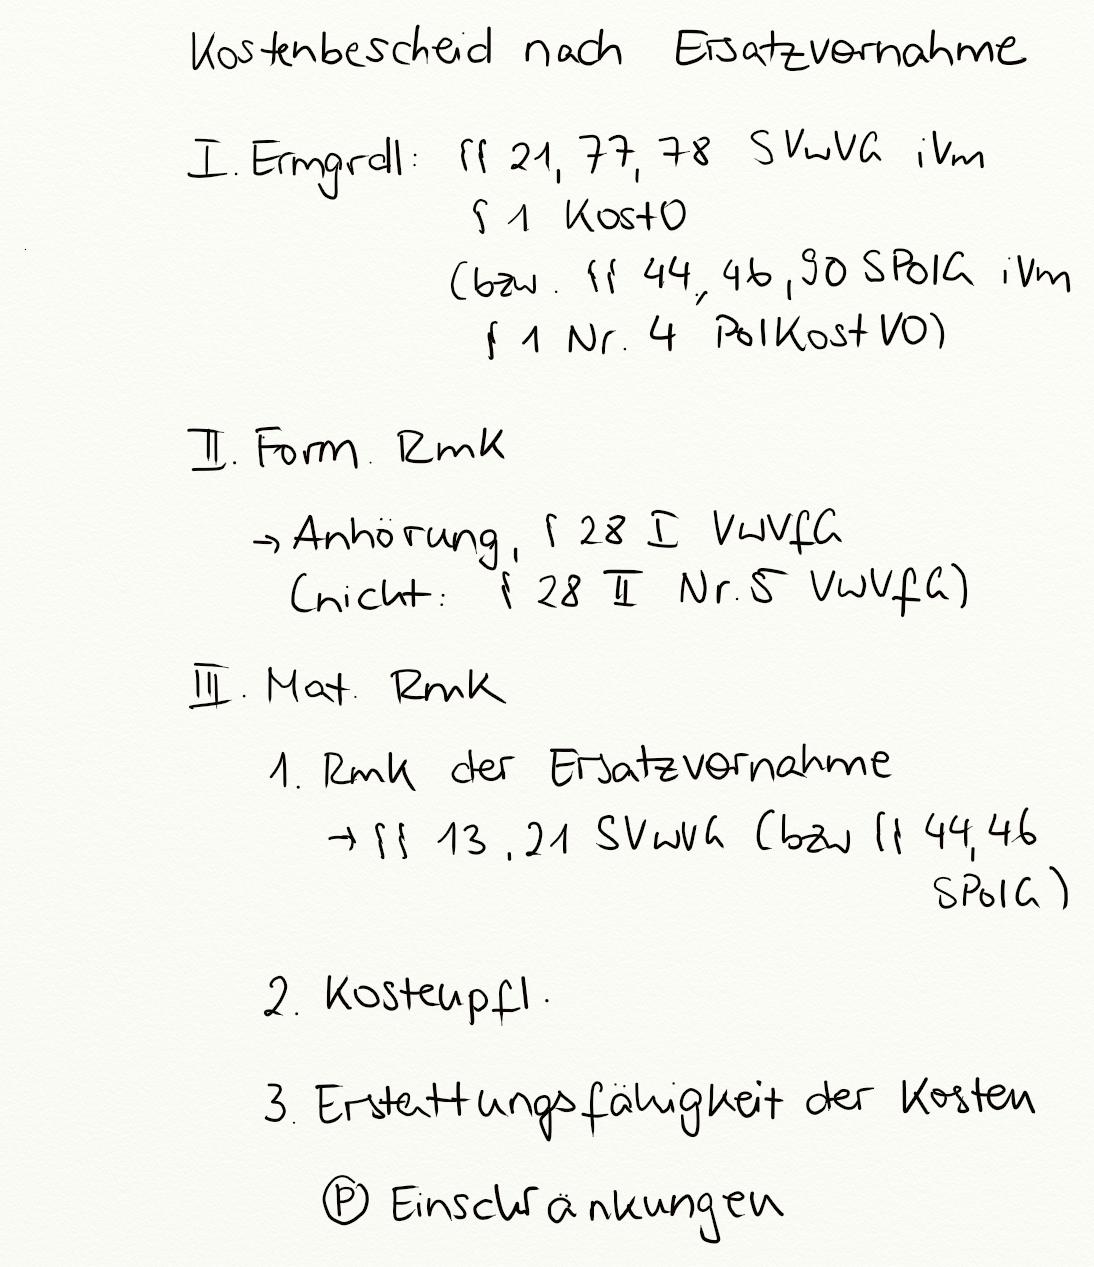 Kostenbescheid nach Ersatzvornahme
I. Ermgrdl: §§ 21, 77, 78 SVwVG iVm
§ 1 KostO
(bzw. §§ 44, 46, 90 SPolG iVm
§ 1 Nr. 4 PolKostVO)
II. Form. RmK
→ Anhörung, § 28 I VwVfG
(nicht: § 28 II Nr. 5 VwVfG)
III. Mat. RmK
1. Rmk der Ersatzvornahme
→ §§ 13, 21 SVwVG (bzw §§ 44, 46
SPolG)
2. Kostenpfl.
3. Erstattungsfähigkeit der Kosten
Ⓟ Einschränkungen